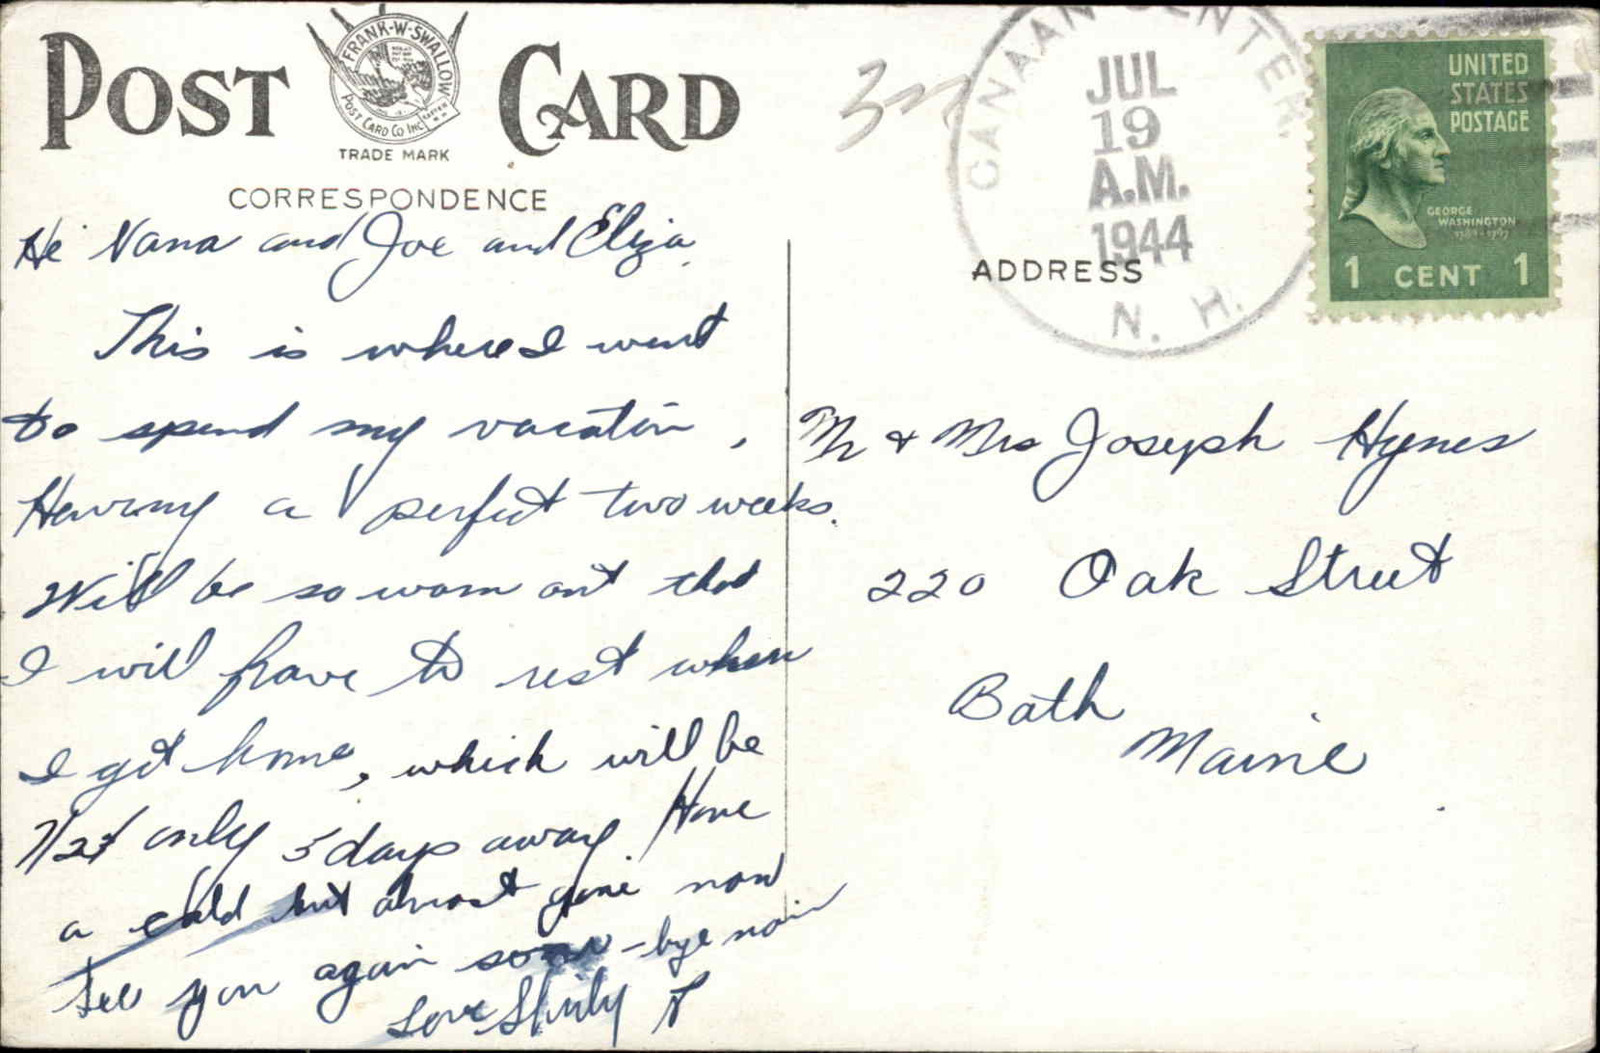 POST CARD
FRANK-W-SWALLOW
POST CARD CO INC
TRADE MARK
CORRESPONDENCE
Hi Nana and Joe and Eliza.
This is where I went
to spend my vacation,
Having a perfect two weeks.
Will be so worn out that
I will have to rest when
I get home, which will be
only 5 days away Have
a cold but almost gone now
See you again soon - bye now
Love Shirly
3
CANAAN CENTER.
JUL
19
A.M.
1944
N. H.
UNITED
STATES
POSTAGE
GEORGE
WASHINGTON
1789-1797
1 CENT 1
ADDRESS
Mr & Mrs Joseph Hynes
220 Oak Street
Bath
Maine